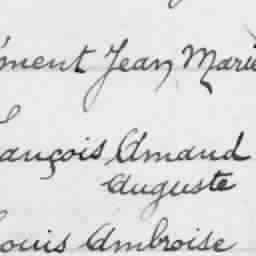 ément Jean Marie
François Amand
Auguste
Louis Ambroise